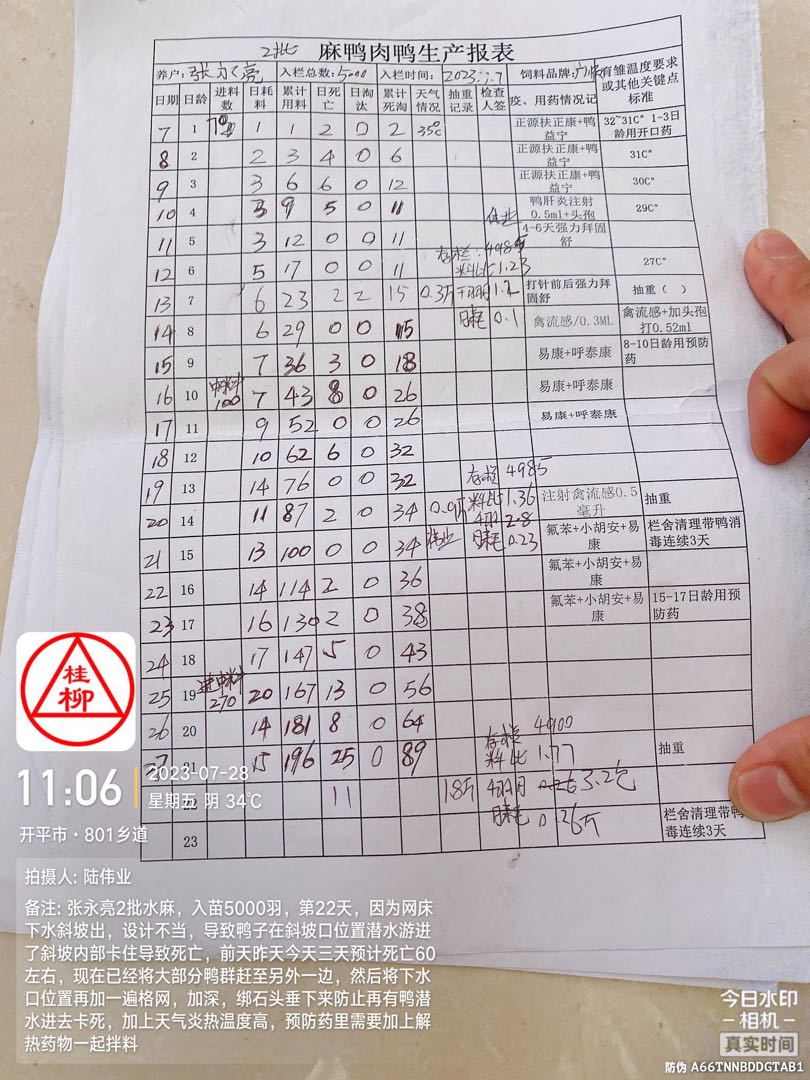 2批 麻鸭肉鸭生产报表
养户: 张永亮 入栏总数: 5000 入栏时间: 2023.7.7 饲料品牌: 广
日期 日龄 进料数 日耗料 累计用料 日死亡 日淘汰 累计死淘 天气情况 抽重记录 检查人签 疫、用药情况记 有雏温度要求或其他关键点标准
7 1 1 1 2 0 2 35℃ 正源扶正康+鸭益宁 32~31C° 1-3日龄用开口药
8 2 2 3 4 0 6 正源扶正康+鸭益宁 31C°
9 3 3 6 6 0 12 正源扶正康+鸭益宁 30C°
10 4 3 9 5 0 11 伟业 鸭肝炎注射0.5ml+头孢 29C°
11 5 3 12 0 0 11 存栏: 4985 4-6天强力拜固舒
12 6 5 17 0 0 11 料比 1.23 27C°
13 7 6 23 2 2 15 0.3斤 1.2 打针前后强力拜固舒 抽重（ ）
14 8 6 29 0 0 15 日耗 0.1 禽流感/0.3ML 禽流感+加头孢打0.52ml
15 9 7 36 3 0 18 易康+呼泰康 8-10日龄用预防药
16 10 中料100 7 43 8 0 26 易康+呼泰康
17 11 9 52 0 0 26 易康+呼泰康
18 12 10 62 6 0 32
19 13 14 76 0 0 32 存栏 4985
20 14 11 87 2 0 34 0.9斤 料比 1.36 2.8 注射禽流感0.5毫升 抽重
21 15 13 100 0 0 34 伟业 日耗 0.23 氟苯+小胡安+易康 栏舍清理带鸭消毒连续3天
22 16 14 114 2 0 36 氟苯+小胡安+易康
23 17 16 130 2 0 38 氟苯+小胡安+易康 15-17日龄用预防药
24 18 17 147 5 0 43
25 19 进中料270 20 167 13 0 56
26 20 14 181 8 0 64 存栏 4900
27 21 15 196 25 0 89 料比 1.77 抽重
22 11 1.8斤 3.2
23 日耗 0.26斤 栏舍清理带鸭毒连续3天
桂柳
11:06 2023-07-28
星期五 阴 34℃
开平市·801乡道
拍摄人: 陆伟业
备注: 张永亮2批水麻，入苗5000羽，第22天，因为网床
下水斜坡出，设计不当，导致鸭子在斜坡口位置潜水游进
了斜坡内部卡住导致死亡，前天昨天今天三天预计死亡60
左右，现在已经将大部分鸭群赶至另外一边，然后将下水
口位置再加一遍格网，加深，绑石头垂下来防止再有鸭潜
水进去卡死，加上天气炎热温度高，预防药里需要加上解
热药物一起拌料
今日水印
-相机-
真实时间
防伪 A66TNNBDDGTAB1